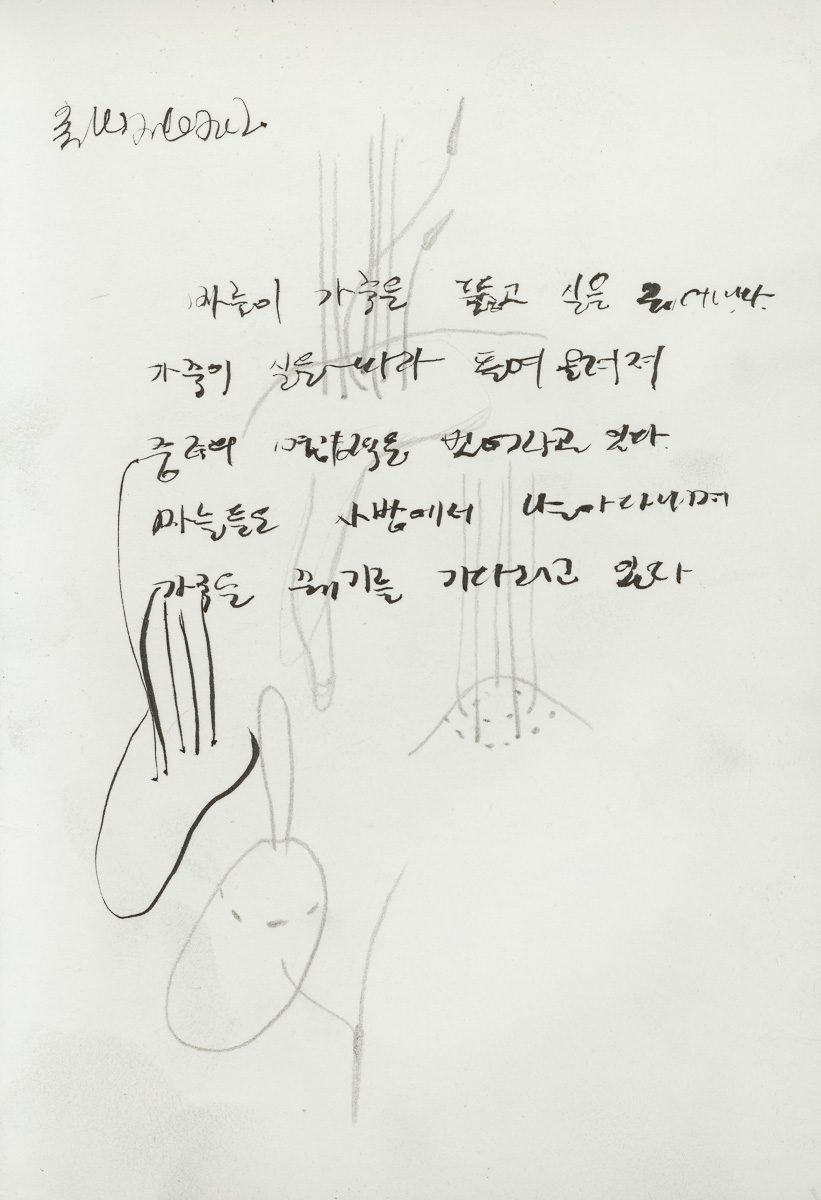 바늘이 가죽을 뚫고 실을 꺼낸다.
가죽이 실을 따라 들여 올려져
중력의 영향력을 벗어나고 있다.
바늘들도 사방에서 날아다니며
가죽들 꿰기를 기다리고 있다